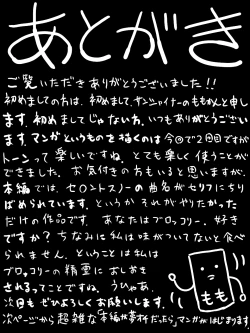 あとがき
ご覧いただきありがとうございました!!
初めましての方は、初めまして、ヤンシナイナーのももめんと申し
ます。初めましてじゃない方、いつもありがとうござい
ます。マンガというものを描くのは今回で2回目ですが
トーンって楽しいですね。とても楽しく使うことが
できました。お気付きの方もいると思いますが、
本編では、セロントスノーの曲名がセリフにちり
ばめられています。というかそれがやりたかった
だけの作品です。あなたはブロッコリー、好き
ですか?ちなみに私は味がついてないと食べ
られません。ということは私は
ブロッコリーの精霊におしおき
されるってことですね。うひゃあ。
次回もぜひよろしくお願いします。
次ページから超雑な本編が第1だったら。マンガがはじまります
もも